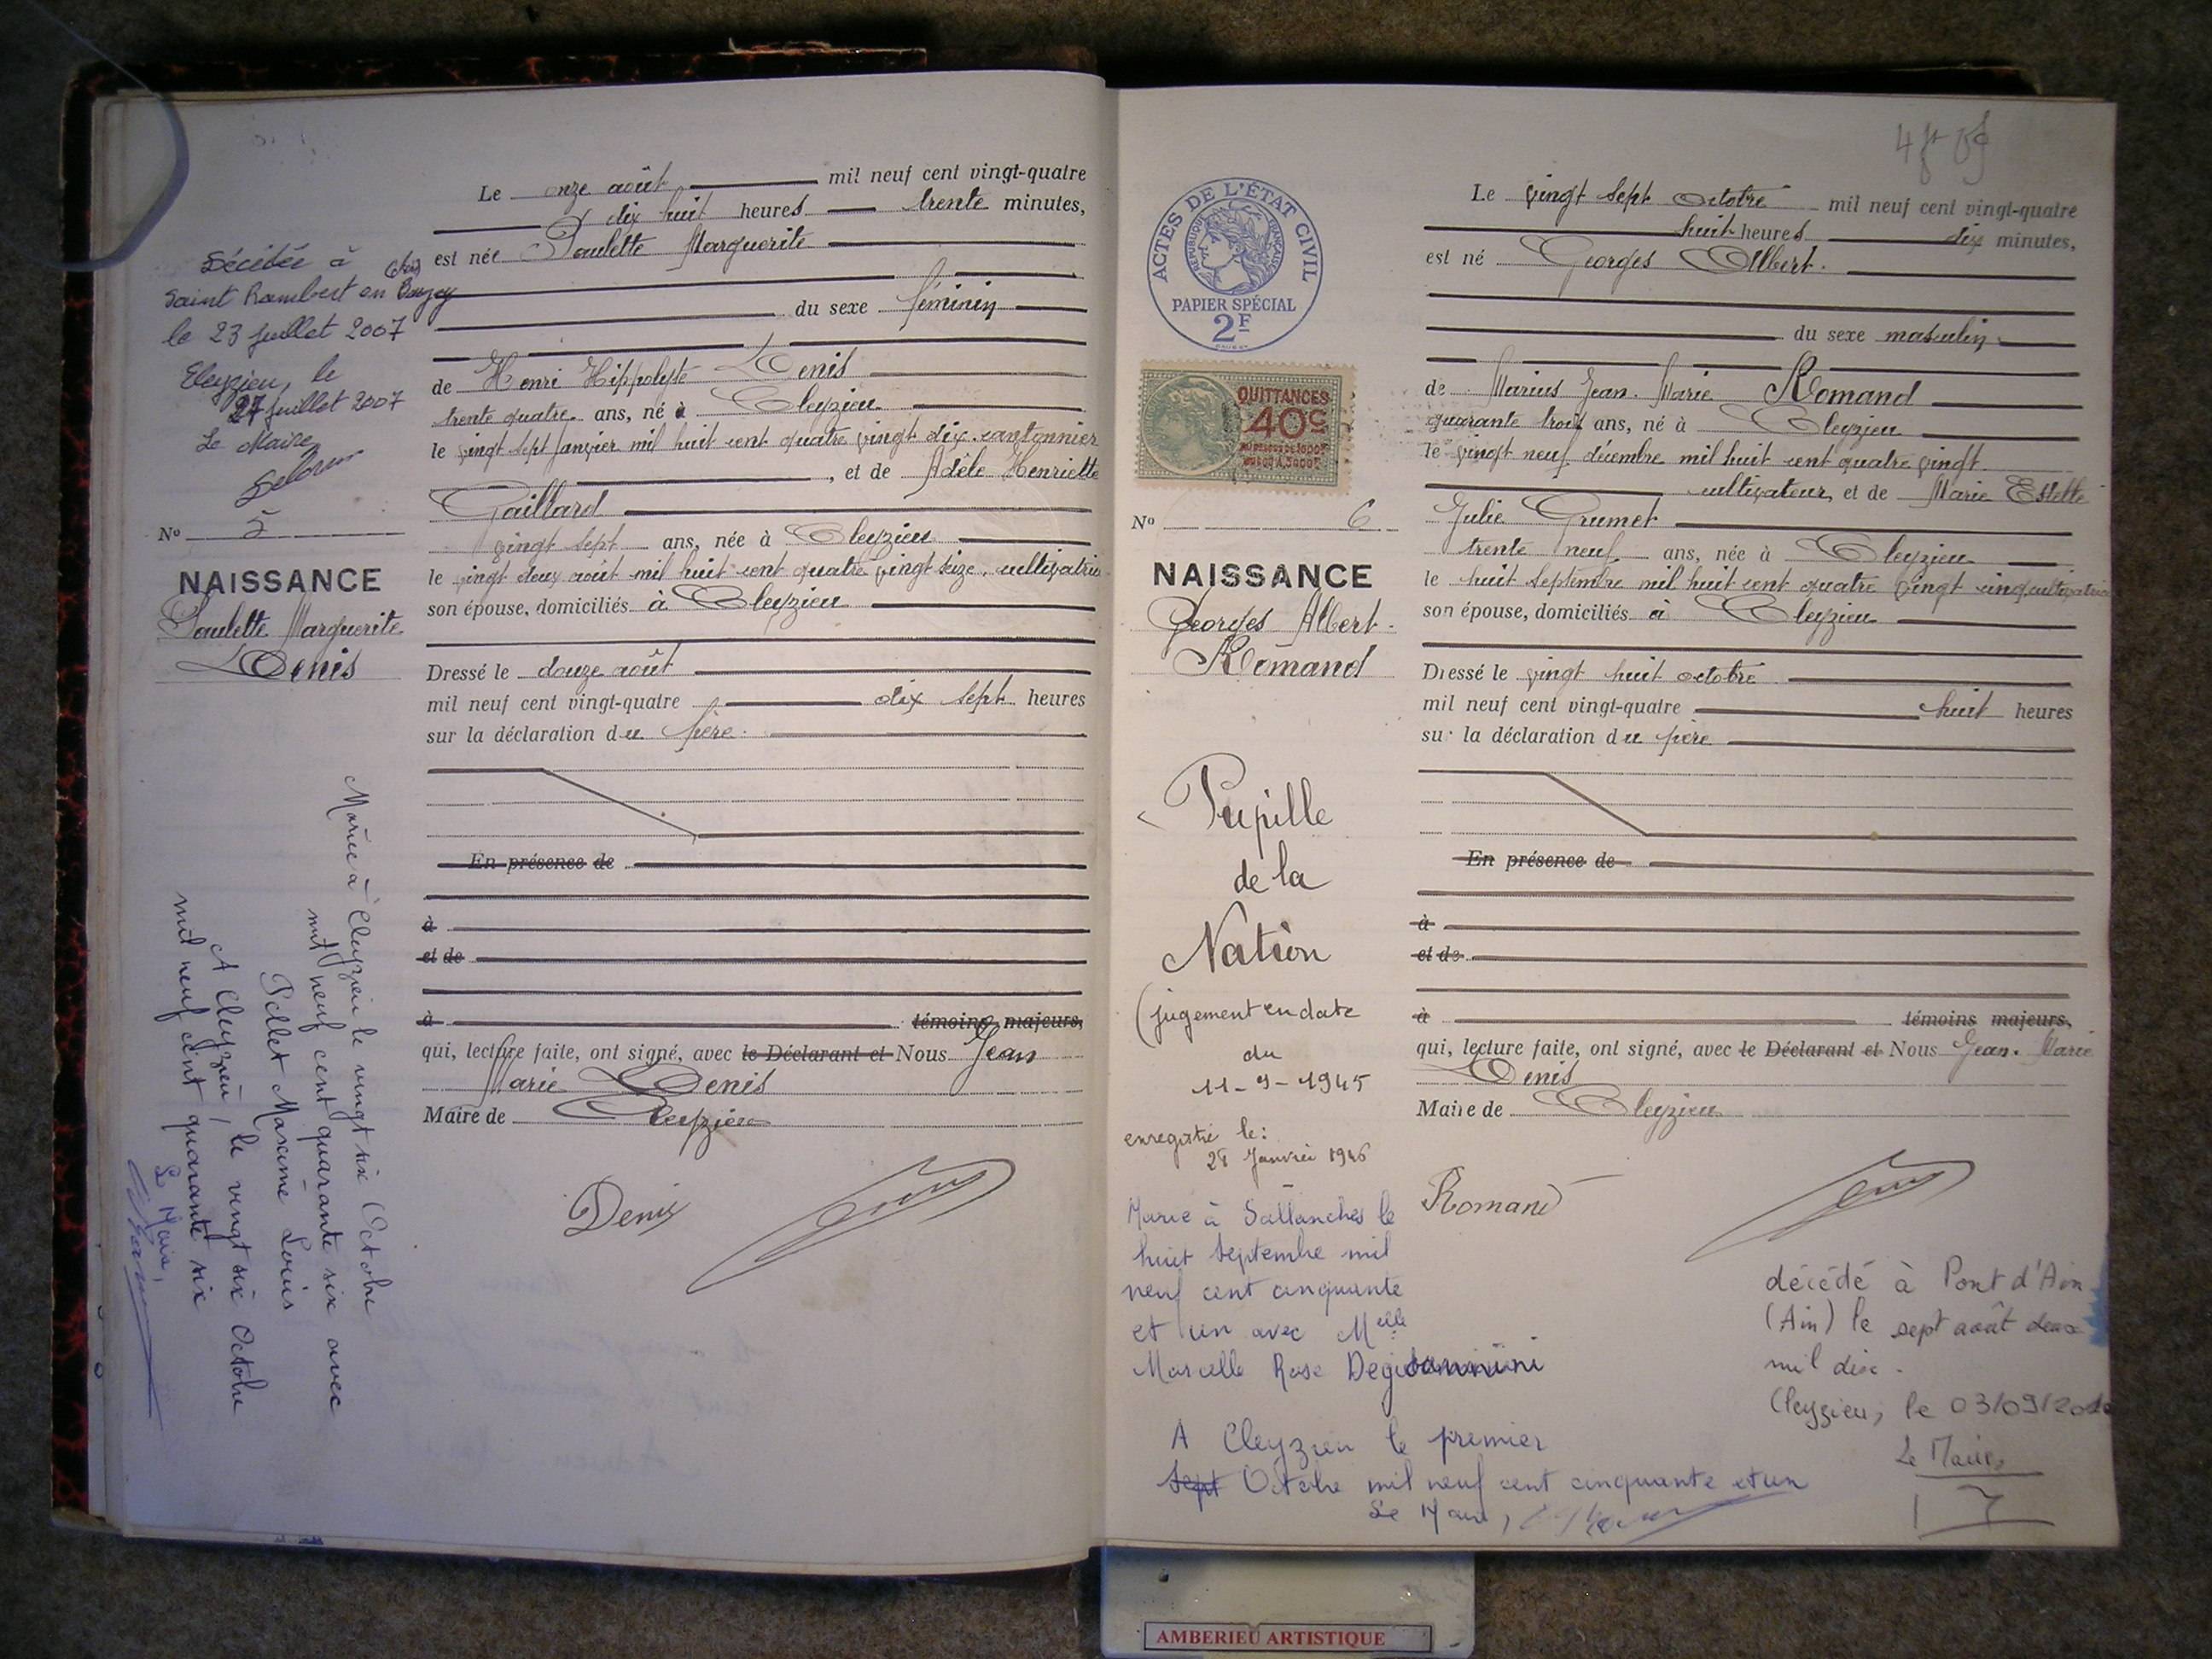 Le onze août mil neuf cent vingt-quatre
dix huit heures trente minutes,
est née Paulette Marguerite
du sexe féminin
de Henri Hippolyte Denis
trente quatre ans, né à Cleyzieu
le vingt sept janvier mil huit cent quatre vingt dix. cantonnier
, et de Adèle Henriette
Gaillard
vingt sept ans, née à Cleyzieu
le vingt deux août mil huit cent quatre vingt seize, cultivatrice
son épouse, domiciliés à Cleyzieu
Dressé le douze août
mil neuf cent vingt-quatre dix sept heures
sur la déclaration du père.
En présence de
à
et de
à témoins majeurs,
qui, lecture faite, ont signé, avec le Déclarant et Nous Jean
Marie Denis
Maire de Cleyzieu
Denis
Décédée à
Saint Rambert en Bugey
le 23 juillet 2007
Cleyzieu, le
27 juillet 2007
Le Maire
No 5
NAISSANCE
Paulette Marguerite
Denis
Mariée à Cleyzieu le vingt six Octobre
mil neuf cent quarante six avec
Pellet Maxime Louis
A Cleyzieu, le vingt six Octobre
mil neuf cent quarante six
Le Maire,
ACTES DE L'ÉTAT CIVIL
RÉPUBLIQUE FRANÇAISE
PAPIER SPÉCIAL
2F
QUITTANCES
40c
No 6
NAISSANCE
Georges Albert.
Romand
Pupille
de la
Nation
(jugement en date
du
11-9-1945
enregistré le:
Janvier 1946
Marié à Sallanches le
huit septembre mil
neuf cent cinquante
et un avec Melle
Marcelle Rose
A Cleyzieu le premier
Sept Octobre mil neuf cent cinquante et un
Le Maire,
Le vingt sept octobre mil neuf cent vingt-quatre
huit heures dix minutes,
est né Georges Albert.
du sexe masculin
de Marius Jean. Marie Romand
quarante trois ans, né à Cleyzieu
le vingt neuf décembre mil huit cent quatre vingt
cultivateur, et de Marie Estelle
Julie Grumet
trente neuf ans, née à Cleyzieu
le huit septembre mil huit cent quatre vingt cinq cultivatrice
son épouse, domiciliés à Cleyzieu
Dressé le vingt huit octobre
mil neuf cent vingt-quatre huit heures
sur la déclaration du père
En présence de
à
et de
à témoins majeurs,
qui, lecture faite, ont signé, avec le Déclarant et Nous Jean. Marie
Denis
Maire de Cleyzieu
Romand
décédé à Pont d'Ain
(Ain) le sept août deux
mil dix.
Cleyzieu, le 03/09/2010
Le Maire,
AMBERIEU ARTISTIQUE